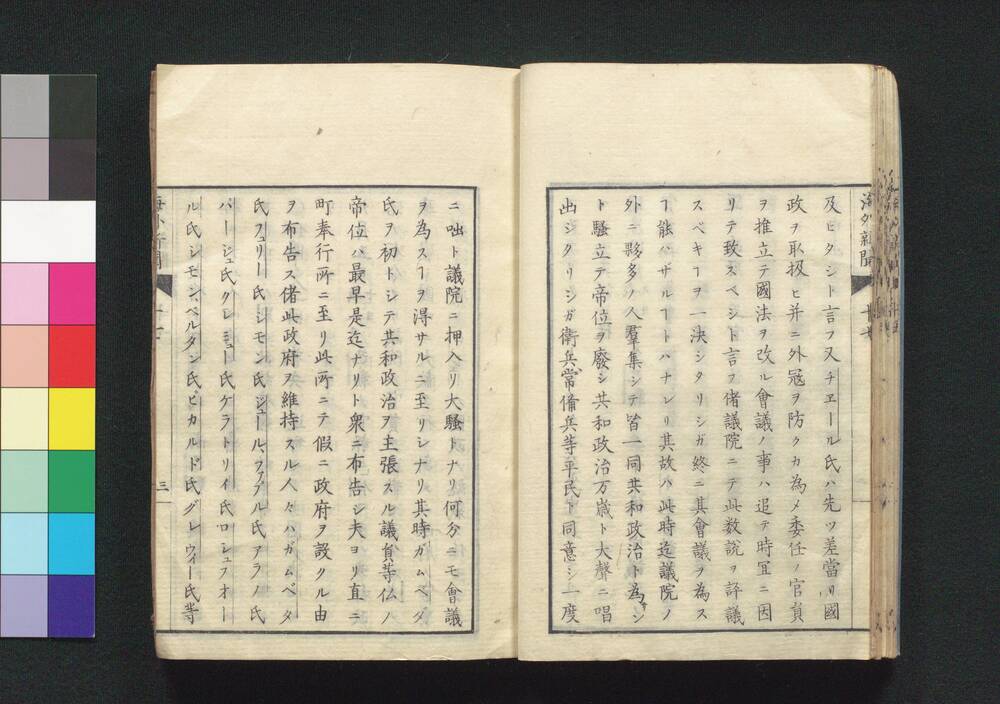 海外新聞
十七
及ヒタシト言フ又チエール氏ハ先ツ差當リ國
政ヲ取扱ヒ并ニ外冦ヲ防クカ為メ委任ノ官員
ヲ推立テ國法ヲ改ル會議ノ事ハ追テ時冝ニ因
リテ致スベシト言フ偖議院ニテ此数説ヲ評議
スベキヿヲ一決シタリシガ終ニ其會議ヲ為ス
ヿ能ハザルヿトハナレリ其故ハ此時迄議院ノ
外ニ夥多ノ人羣集シテ皆一同共和政治ト為シ
ト騒立テ帝位ヲ廢シ共和政治万歳ト大聲ニ唱
出シタリシガ衛兵常備兵等平民ト同意シ一度
ニ咄ト議院ニ押入リ大騒トナリ何分ニモ會議
ヲ為スヿヲ得サルニ至リシナリ其時ガムベタ
氏ヲ初トシテ共和政治ヲ主張スル議員等仏ノ
帝位ハ最早是迄ナリト衆ニ布告シ夫ヨリ直ニ
町奉行所ニ至リ此所ニテ假ニ政府ヲ設クル由
ヲ布告ス偖此政府ヲ維持スル人々ハガムベタ
氏フェリー氏シモン氏ジュール、ファブル氏アラノ氏
パージュ氏クレミュー氏ゲラトリイ氏ロシュフオー
ル氏シモン、ベルタン氏ピカルド氏グレウィー氏等
三